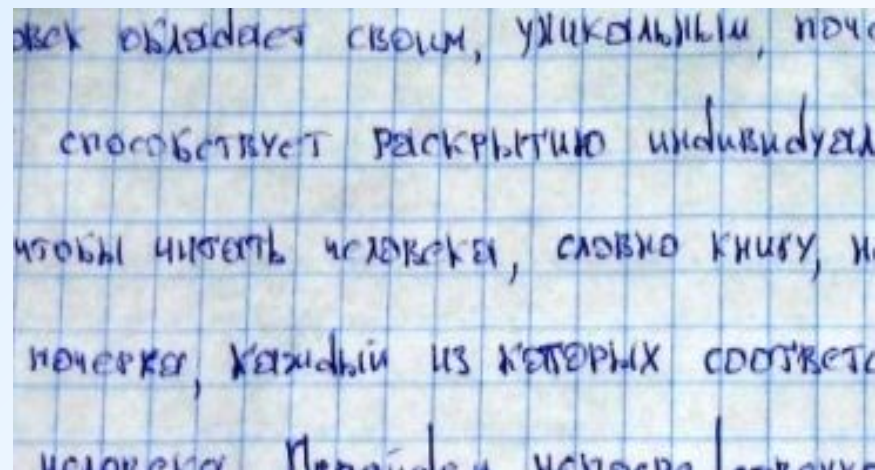 овек обладает своим, уникальным, поче
способствует раскрытию индивидуал
чтобы читать человека, словно книгу, н
почерка, каждый из которых соответс
человека. Перейдем